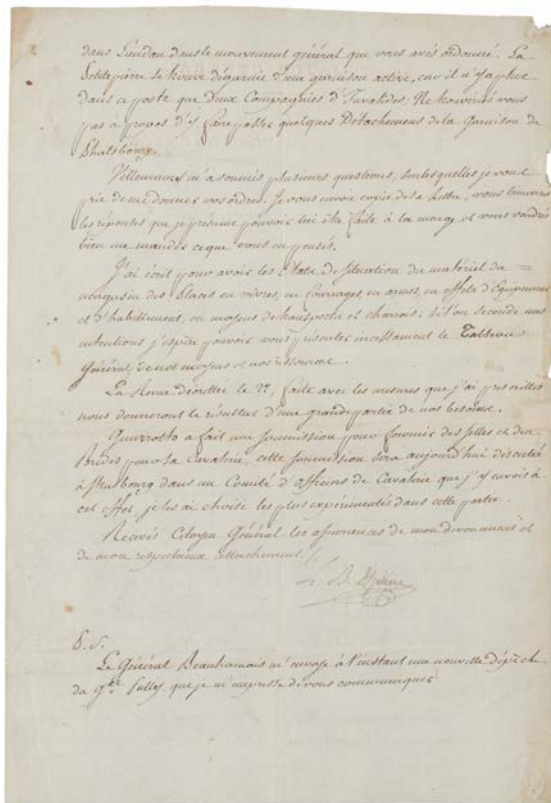 dans Landau dans le mouvement général que vous avés ordonné. La
Petite pierre se trouve dégarnie d'une garnison active, car il n'y a plus
dans ce poste que deux Compagnies d'Invalides. Ne trouverés vous
pas a propos d'y faire passer quelques Détachemens de la Garnison de
Phalsbourg.
Villemanzy m'a soumis plusieurs questions, sur lesquelles je vous
prie de me donner vos ordres. Je vous envoie copie de sa lettre, vous trouverés
les réponses que je présume pouvoir lui être faite à la marge, et vous voudrés
bien me mander ce que vous en pensés.
J'ai écrit pour avoir les Etats de situation du matériel du =
magasin des Places en vivres, en fourrages, en armes, en effets d'Equipement
et d'habillement, en moyens de transports et charois; si l'on seconde mes
intentions j'espère pouvoir vous présenter incessament le Tableau
Général de nos moyens et nos ressources.
La Revue décrettée le 22, faite avec les mesures que j'ai prescrittes
nous donneront le résultat d'une grande partie de nos besoins.
a fait une soumission pour fournir des selles et des
Brides pour la Cavalerie, cette soumission sera aujourd'hui discutée
à Strasbourg dans un Comité d'officiers de Cavalerie que j'y envois à
cet effet, je les ai choisi les plus expérimentés dans cette partie.
Recevés Citoyen Général les assurances de mon dévouement et
de mon respectueux attachement.
P.S.
Le Général Beauharnais m'envoye à l'instant une nouvelle dépêche
du G.al que je m'empresse de vous communiquer